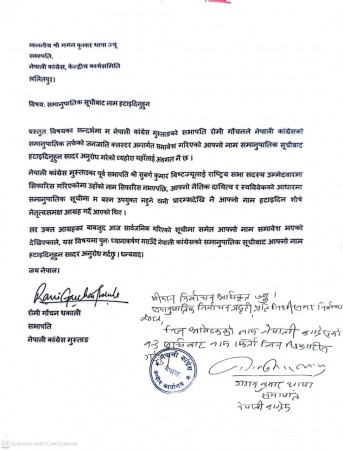 माननीय श्री गगन कुमार थापा ज्यू
सभापति,
नेपाली कांग्रेस, केन्द्रीय कार्यसमिति
ललितपुर।
विषयः समानुपातिक सूचीबाट नाम हटाइदिनुहुन
प्रस्तुत विषयका सन्दर्भमा म नेपाली कांग्रेस मुस्ताङको सभापति रोमी गौचनले नेपाली कांग्रेसको
समानुपातिक तर्फको जनजाति क्लस्टर अन्तर्गत समावेश गरिएको आफ्नो नाम समानुपातिक सूचीबाट
हटाइदिनुहुन सादर अनुरोध गरेको व्यहोरा यहाँलाई अवगत नै छ ।
नेपाली कांग्रेस मुस्ताङका पूर्व सभापति श्री सुवर्ण कुमार बिष्टज्यूलाई राष्ट्रिय सभा सदस्य उम्मेदवारमा
सिफारिस गरिएकोमा उहाँको नाम सिफारिस नभएपछि, आफ्नो नैतिक दायित्व र स्वविवेकको आधारमा
समानुपातिक सूचीमा म बस्न उपयुक्त नहुने ठानी प्रारम्भदेखि नै आफ्नो नाम हटाइदिन शीर्ष
नेतृत्वसमक्ष आग्रह गर्दै आएको थिए ।
तर उक्त आग्रहका बाबजुद आज सार्वजनिक गरिएको सूचीमा समेत आफ्नो नाम समावेश भएको
देखिएकाले, यस विषयमा पुनः ध्यानाकर्षण गराउँदै नेपाली कांग्रेसको समानुपातिक सूचीबाट आफ्नो नाम
हटाइदिन सादर अनुरोध गर्दछु । धन्यवाद।
जय नेपाल।
रोमी गौचन थकाली
सभापति
नेपाली कांग्रेस मुस्ताङ
श्रीमान् निर्वाचन अधिकृत ज्यू
समानुपातिक निर्वाचन
निज आवेदकको नाम नेपाली कांग्रेसको
नेपाली कांग्रेस
केन्द्रीय कार्यालय
गगन कुमार थापा
सभापति
नेपाली कांग्रेस
Scanned with CamScanner